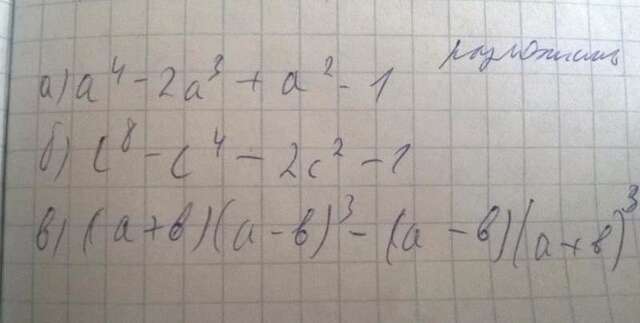 разложить
а) a⁴ - 2a³ + a² - 1
б) c⁸ - c⁴ - 2c² - 1
в) (a+b)(a-b)³ - (a-b)(a+b)³